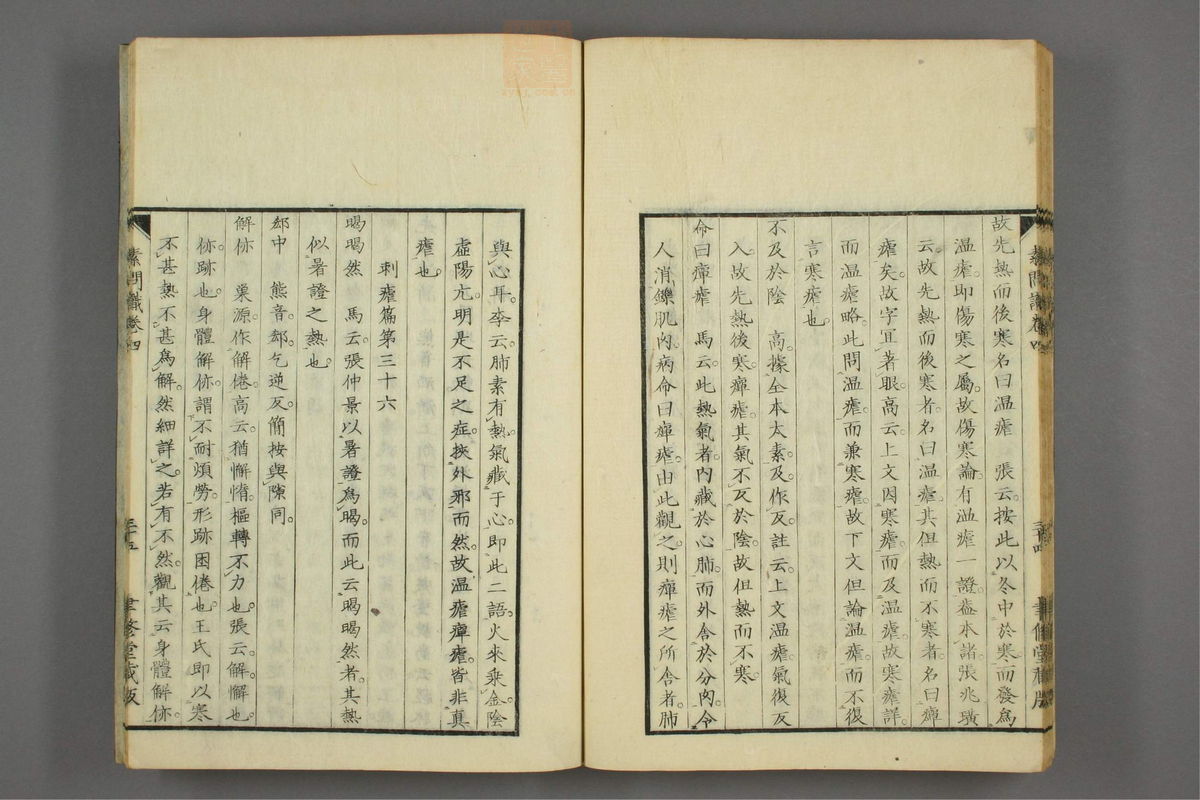 故先熱而後寒名曰温瘧 張云按此以冬中於寒而發爲
温瘧即傷寒之屬故傷寒論有温瘧一證蓋本諸張兆璜
云故先熱而後寒者名曰温瘧其但熱而不寒者名曰癉
瘧矣故字冝著眼高云上文因寒瘧而及温瘧故寒瘧詳
而温瘧略此問温瘧而兼寒瘧故下文但論温瘧而不復
言寒瘧也
不及於陰 高據全本太素及作反註云上文温瘧氣復反
入故先熱後寒癉瘧其氣不反於陰故但熱而不寒
命曰癉瘧 馬云此熱氣者内藏於心肺而外舎於分肉令
人消鑠肌肉病命曰癉瘧由此觀之則癉瘧之所舎者肺
素問識卷四
三十四
聿修堂藏版
與心耳李云肺素有熱氣藏于心即此二語火來乗金陰
虚陽亢明是不足之症挾外邪而然故温瘧癉瘧皆非真
瘧也
刺瘧篇第三十六
暍暍然 馬云張仲景以暑證爲暍而此云暍暍然者其熱
似暑證之熱也
郄中 熊音郄乞逆反簡按與隙同
解㑊 巢源作解倦高云猶懈惰樞轉不力也張云解懈也
㑊跡也身體解㑊謂不耐煩勞形跡困倦也王氏即以寒
不甚熱不甚爲解然細詳之若有不然觀其云身體解㑊
素問識卷四
三十五
聿修堂藏版